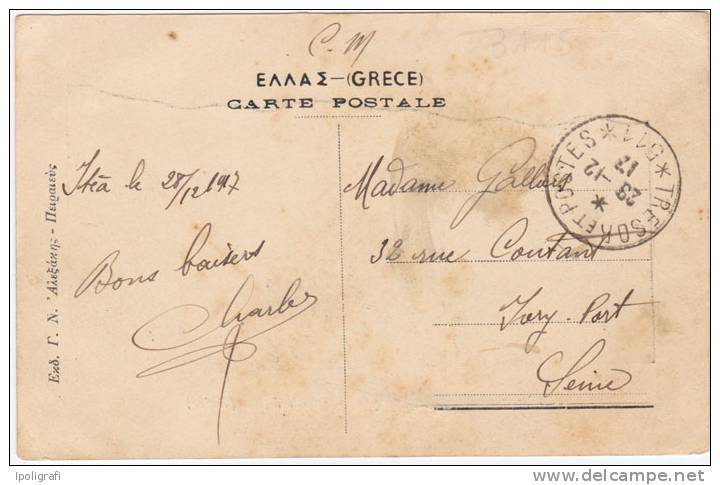 C. M
3115
ΕΛΛΑΣ—(GRECE)
CARTE POSTALE
Εκδ. Γ. Ν. Ἀλεξάκης - Πειραιεύς
Itéa le 28/12 1917
Bons baisers
Charles
Madame
32 rue Coutant
Ivry-Port
Seine
* TRESOR ET POSTES * 511
23
-12
17
*
Ipoligrafi
www.delcampe.net